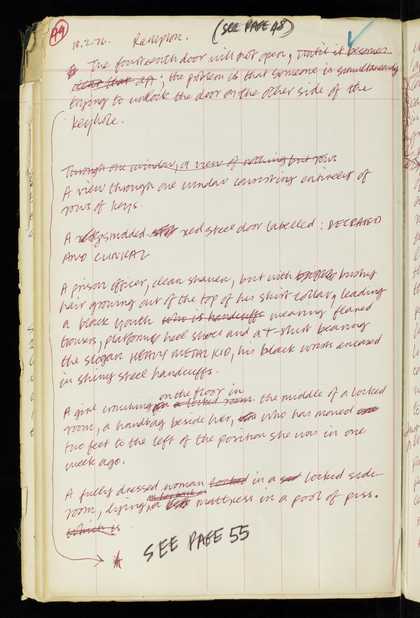 49
(SEE PAGE 48)
10.2.76. Reception.
The fourteenth door will not open, until it becomes
clear that ; the problem is that someone is simultaneously
trying to unlock the door on the other side of the
keyhole.
Through one window, a view of nothing but rows
A view through one window consisting entirely of
rows of keys.
A studded red steel door labelled: DECEASED
AND CLINICAL
A prison officer, clean shaven, but with bushy
hair growing out of the top of his shirt collar, leading
a black youth who is handcuffs wearing flared
trousers, platform heel shoes and a t-shirt bearing
the slogan HEAVY METAL KID, his black wrists encased
in shiny steel handcuffs.
on the floor in
A girl crouching in a locked room the middle of a locked
room, a handbag beside her, who has moved
two feet to the left of the position she was in one
week ago.
A fully dressed woman locked in a locked side
room, lying, a mattress in a pool of piss.
which is
SEE PAGE 55